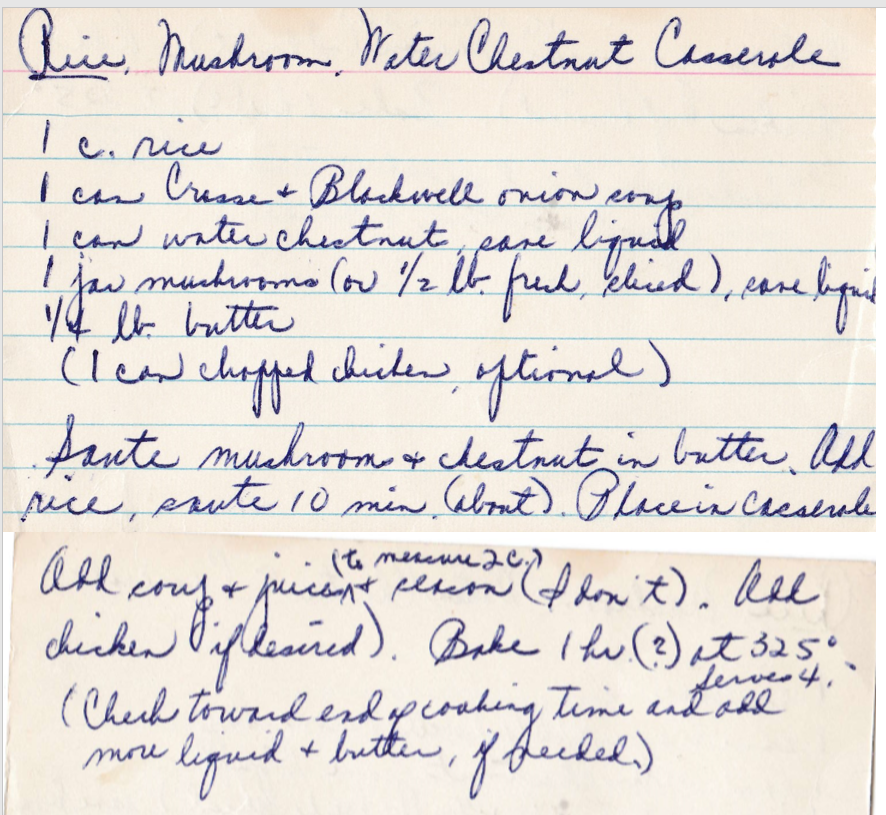 Rice, Mushroom, Water Chestnut Casserole
1 c. rice
1 can Crosse + Blackwell onion soup
1 can water chestnut, save liquid
1 jar mushrooms (or 1/2 lb. fresh, sliced), save liquid
1/4 lb. butter
(1 can chopped chicken, optional)
Saute mushrooms + chestnut in butter. Add
rice, saute 10 min. (about). Place in casserole
(to measure 2 c.)
Add soup + juices + season (I don't). Add
chicken if desired). Bake 1 hr. (?) at 325°.
Serves 4.
(Check toward end of cooking time and add
more liquid + butter, if needed.)